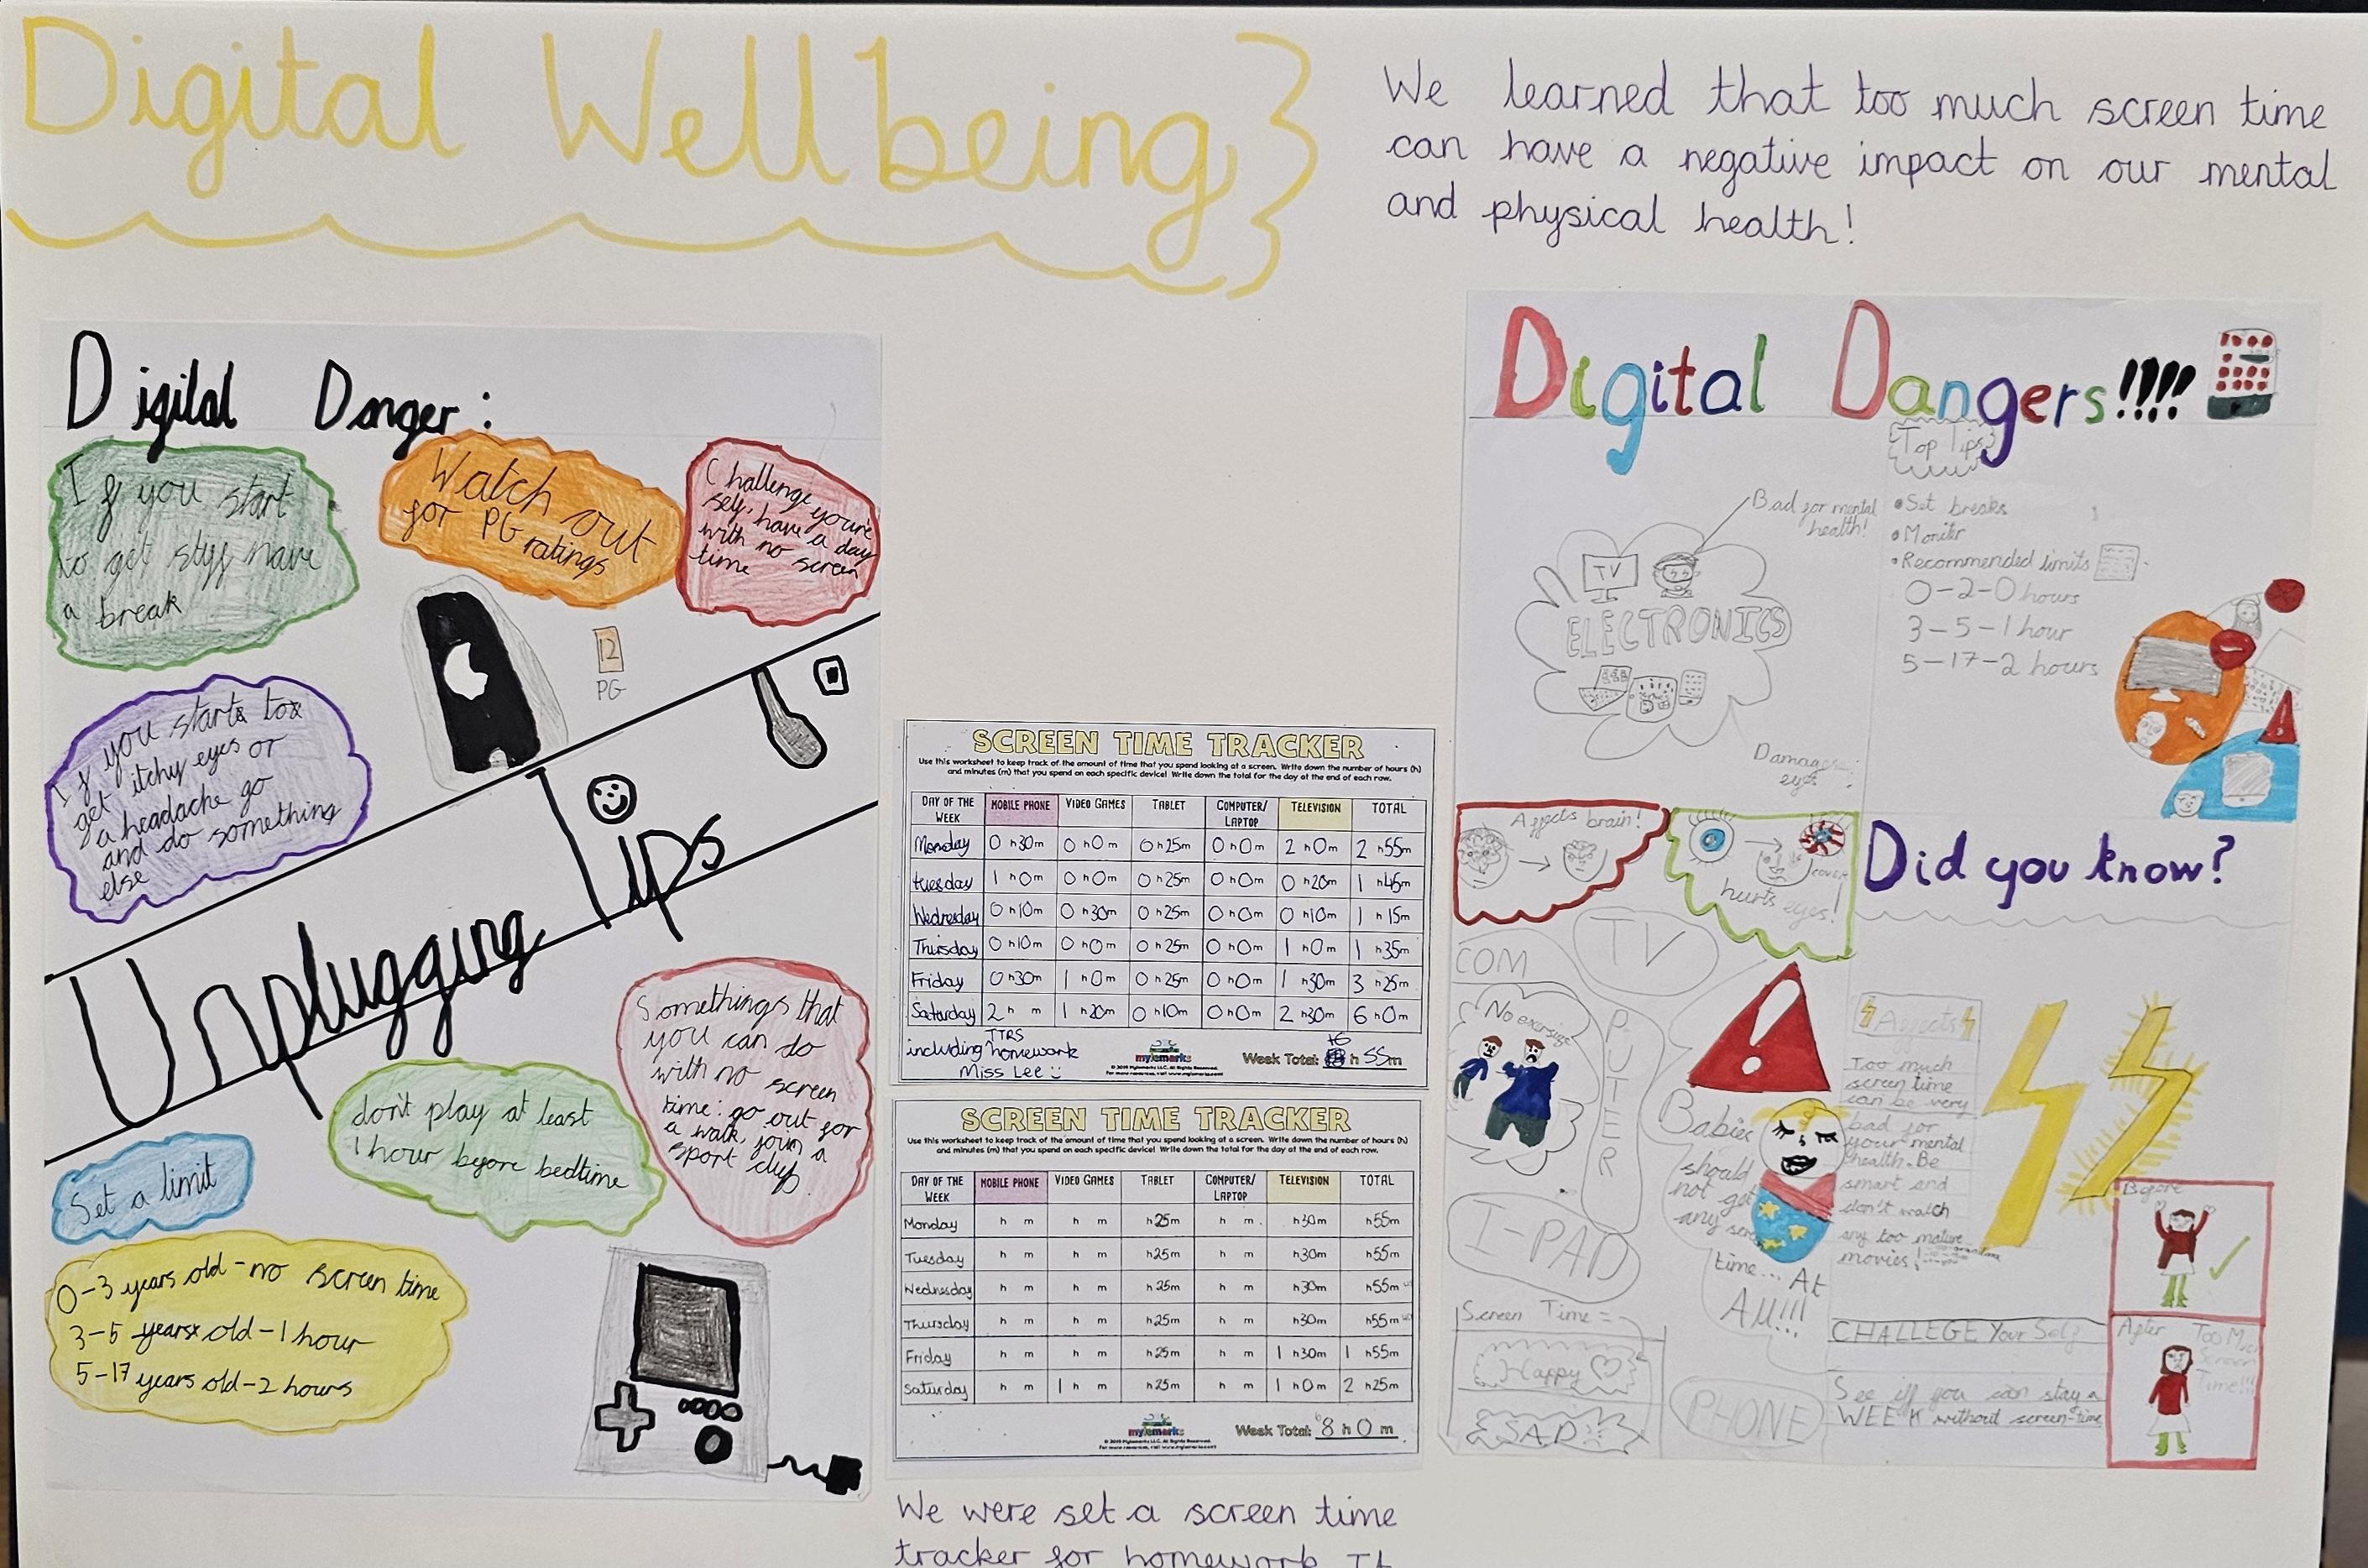 Digital Wellbeing
We learned that too much screen time
can have a negative impact on our mental
and physical health!
Digital Danger:
If you start
to get styf have
a break
Watch out
for PG
ratings
Challenge youre
self, have a day
with no screen
time
12
PG
If you starts to
get itchy eyes or
a headache go
and do something
else
Unplugging Tips
Somethings that
you can do
with no screen
time: go out for
a walk, join a
sport club
don't play at least
1 hour before bedtime
Set a limit
0-3 years old - no screen time
3-5 years old - 1 hour
5-17 years old - 2 hours
SCREEN TIME TRACKER
Use this worksheet to keep track of the amount of time that you spend looking at a screen. Write down the number of hours (h)
and minutes (m) that you spend on each specific device! Write down the total for the day at the end of each row.
DAY OF THE WEEK MOBILE PHONE VIDEO GAMES TABLET COMPUTER/ LAPTOP TELEVISION TOTAL
Monday 0 h 30m 0 h 0m 0 h 25m 0 h 0m 2 h 0m 2 h 55m
Tuesday 1 h 0m 0 h 0m 0 h 25m 0 h 0m 0 h 20m 1 h 45m
Wednesday 0 h 10m 0 h 30m 0 h 25m 0 h 0m 0 h 10m 1 h 15m
Thursday 0 h 10m 0 h 0m 0 h 25m 0 h 0m 1 h 0m 1 h 35m
Friday 0 h 30m 1 h 0m 0 h 25m 0 h 0m 1 h 30m 3 h 25m
Saturday 2 h m 1 h 20m 0 h 10m 0 h 0m 2 h 30m 6 h 0m
TTRS
including homework
Miss Lee
mylemarks
© 2019 Mylemarks LLC. All Rights Reserved.
For more resources, visit www.mylemarks.com!
Week Total: 16 h 55m
SCREEN TIME TRACKER
Use this worksheet to keep track of the amount of time that you spend looking at a screen. Write down the number of hours (h)
and minutes (m) that you spend on each specific device! Write down the total for the day at the end of each row.
DAY OF THE WEEK MOBILE PHONE VIDEO GAMES TABLET COMPUTER/ LAPTOP TELEVISION TOTAL
Monday h m h m h 25m h m h 30m h 55m
Tuesday h m h m h 25m h m h 30m h 55m
Wednesday h m h m h 25m h m h 30m h 55m
Thursday h m h m h 25m h m h 30m h 55m
Friday h m h m h 25m h m 1 h 30m 1 h 55m
Saturday h m 1 h m h 25m h m 1 h 0m 2 h 25m
mylemarks
© 2019 Mylemarks LLC. All Rights Reserved.
For more resources, visit www.mylemarks.com!
Week Total: 8 h 0 m
We were set a screen time
tracker for homework. It
Digital Dangers!!!!
Top Tips
Bad for mental
health!
• Set breaks
• Moniter
• Recommended limits
0-2-0 hours
3-5-1 hour
5-17-2 hours
TV
ELECTRONICS
Damages
eyes
Affects brain!
hurts eyes!
Did you know?
COM
PUTER
TV
No exersise
Babies
should
not get
any
time... At
All!!!
I-PAD
Affects
Too much
screen time
can be very
bad for
your mental
health. Be
smart and
don't watch
any too mature
movies!
Before
After
Too Much
Screen
Time!!!
Screen Time =
Happy
SAD
PHONE
CHALLEGE Your Self
See if you can stay a
WEEK without screen-time